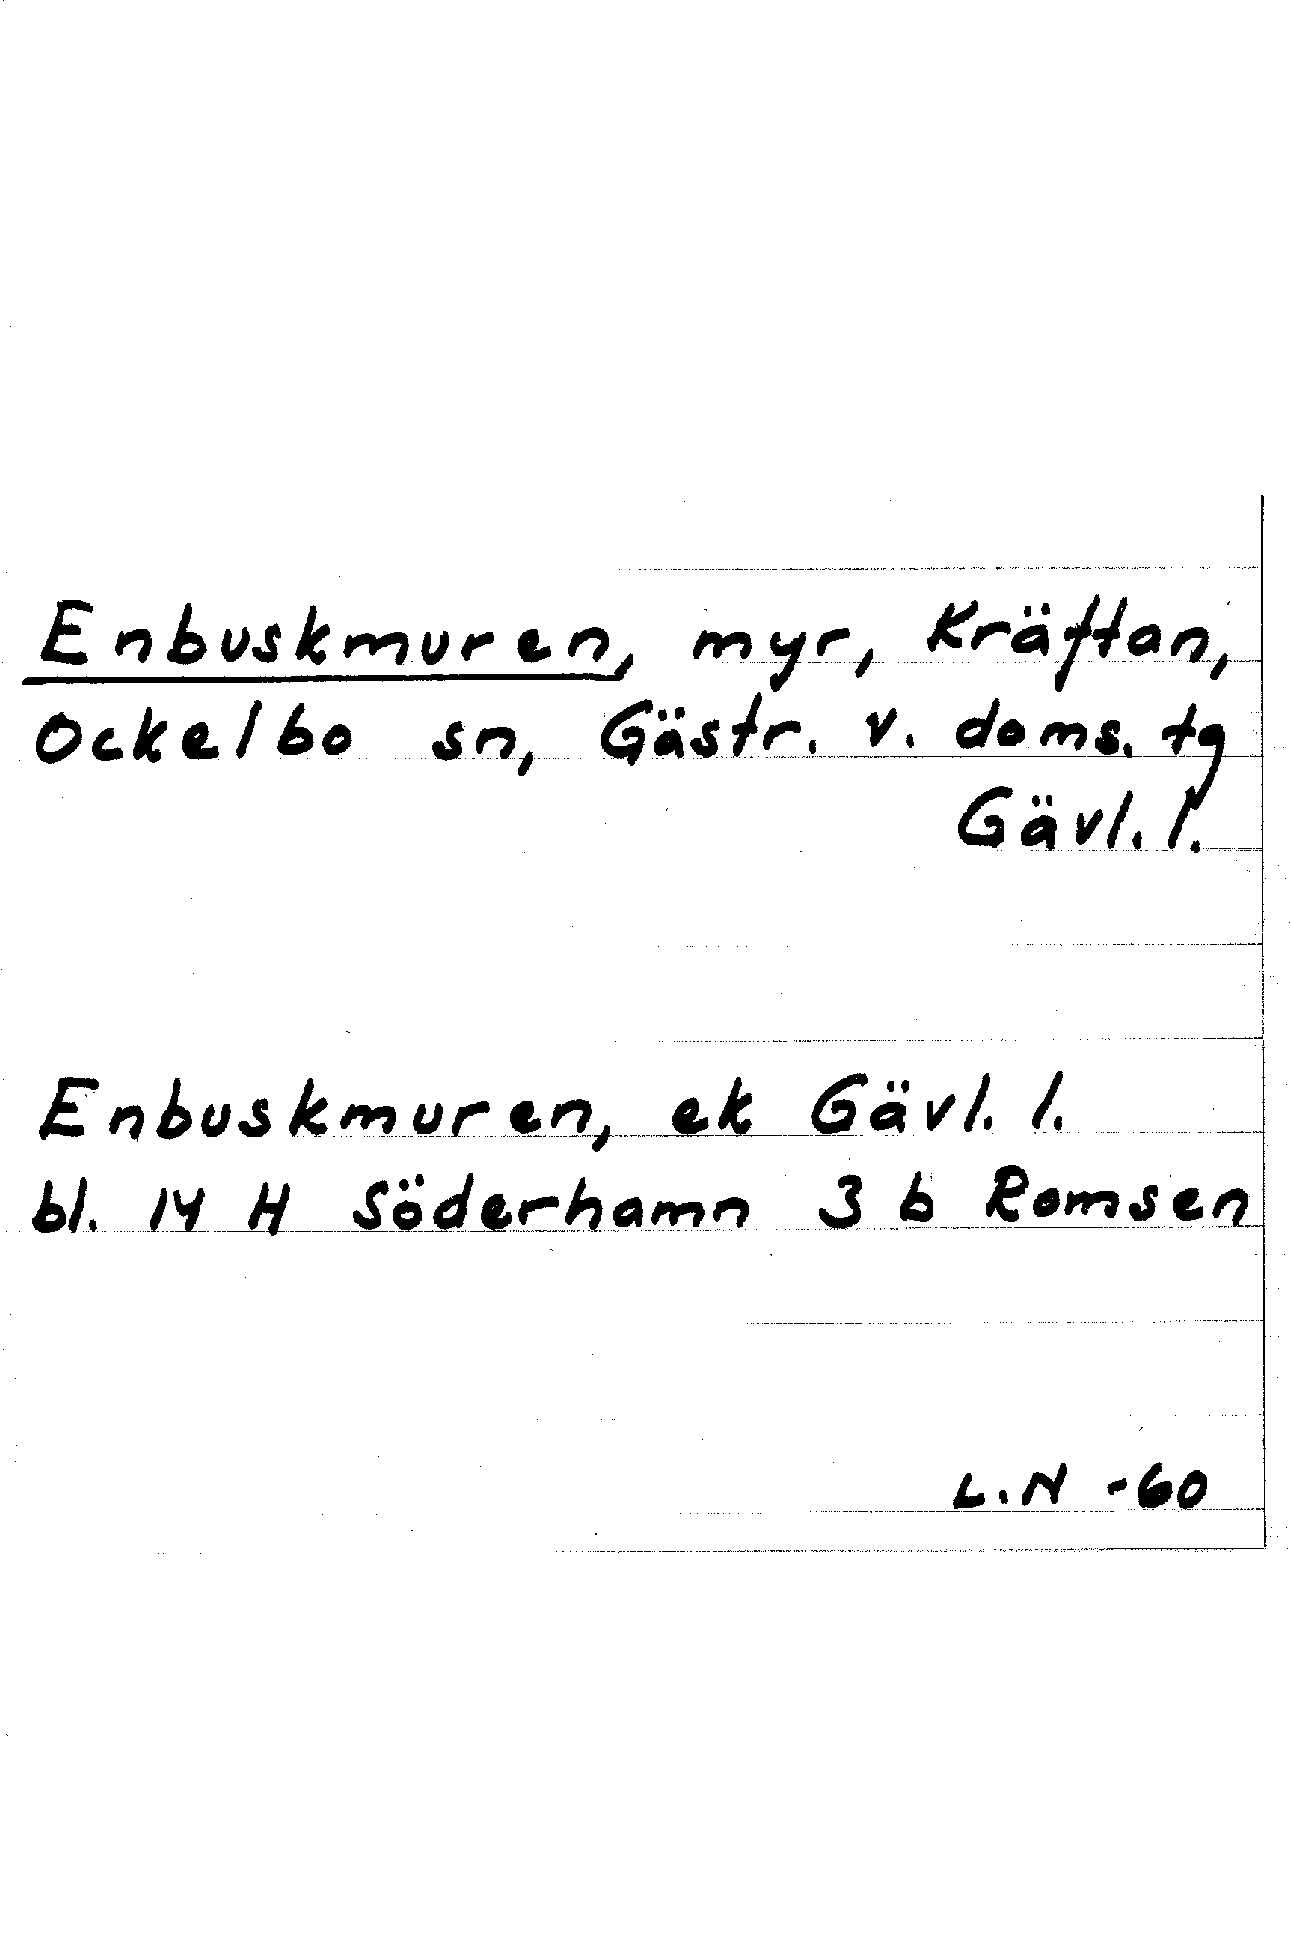 Enbuskmuren, myr, Kräftan,
Ockelbo sn, Gästr. v. doms. tg
Gävl. l.
Enbuskmuren, ek Gävl. l.
bl. 14 H Söderhamn 3 b Romsen
L.N -60